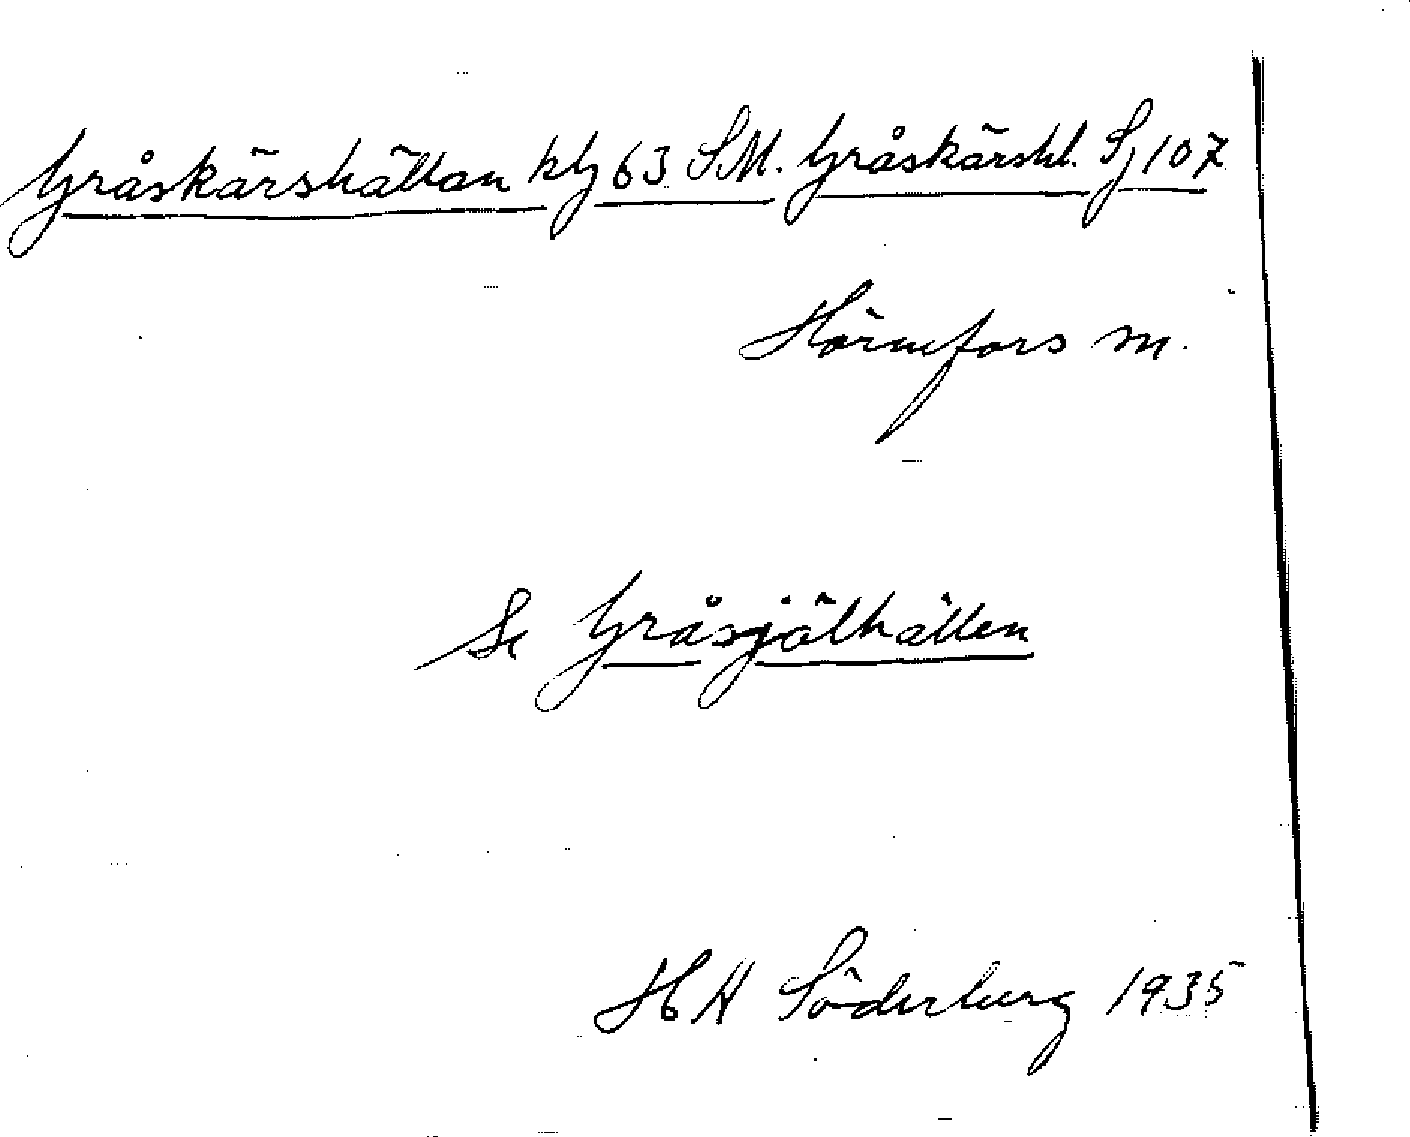 Gråskärshällan kbl 63 SM. Gråskärshl. Sj 107
Hörnefors sn.
Se Gråsjälhällen
H A Söderberg 1935